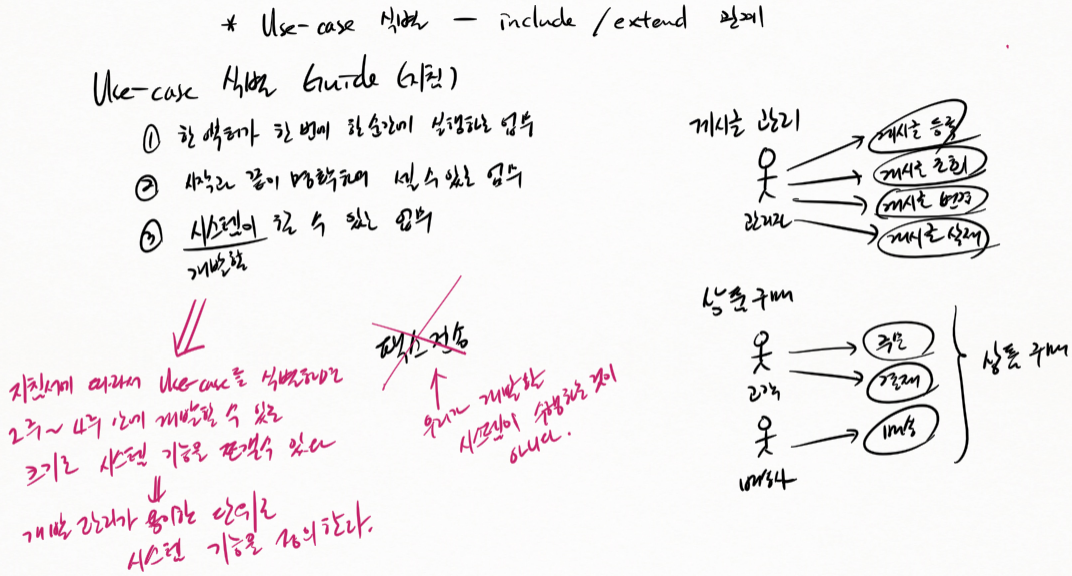 * Use-case 식별 — include / extend 관계
Use-case 식별 Guide (지침)
① 한 액터가 한 번에 한 순간에 실행하는 업무
② 시작과 끝이 명확하여 셀 수 있는 업무
③ 시스템이 할 수 있는 업무
개발할
지침서에 따라서 Use-case를 식별하면
2주~4주 안에 개발할 수 있는
크기로 시스템 기능을 쪼갤수 있다
개발 관리가 용이한 단위로
시스템 기능을 정의한다.
팩스 전송
우리가 개발할
시스템이 수행하는 것이
아니다.
게시글 관리
관리자
게시글 등록
게시글 조회
게시글 변경
게시글 삭제
상품 구매
고객
주문
결제
상품 구매
배송사
배송